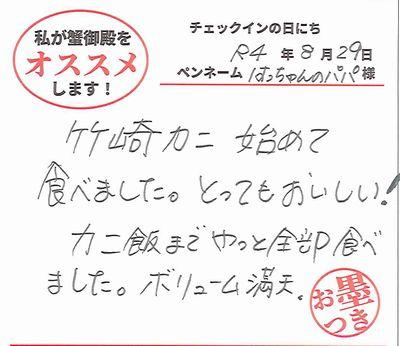 私が蟹御殿を
オススメ
します!
チェックインの日にち
R4 年 8 月 29 日
ペンネーム はっちゃんのパパ 様
竹崎カニ 始めて
食べました。とってもおいしい!
カニ飯まで やっと全部 食べ
ました。ボリューム満天.
お墨
つき